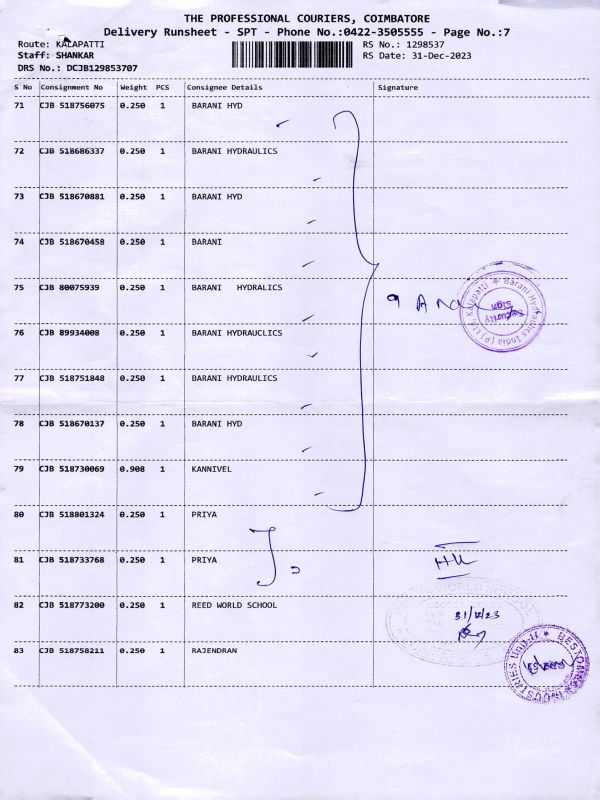 THE PROFESSIONAL COURIERS, COIMBATORE
Delivery Runsheet - SPT - Phone No.:0422-3505555 - Page No.:7
Route: KALAPATTI RS No.: 1298537
Staff: SHANKAR RS Date: 31-Dec-2023
DRS No.: DCJB129853707
S No Consignment No Weight PCS Consignee Details Signature
71 CJB 518756075 0.250 1 BARANI HYD
72 CJB 518686337 0.250 1 BARANI HYDRAULICS
73 CJB 518670881 0.250 1 BARANI HYD
74 CJB 518670458 0.250 1 BARANI
75 CJB 80075939 0.250 1 BARANI HYDRALICS
9
Barani Hydraulics India (P) Ltd. Kalapatti
Security
Sign
76 CJB 89934008 0.250 1 BARANI HYDRAUCLICS
77 CJB 518751848 0.250 1 BARANI HYDRAULICS
78 CJB 518670137 0.250 1 BARANI HYD
79 CJB 518730069 0.908 1 KANNIVEL
80 CJB 518801324 0.250 1 PRIYA
81 CJB 518733768 0.250 1 PRIYA
82 CJB 518773200 0.250 1 REED WORLD SCHOOL
31/12/23
83 CJB 518758211 0.250 1 RAJENDRAN